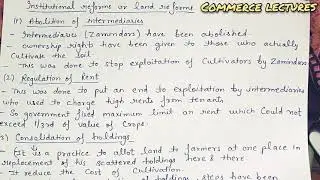 COMMERCE LECTURES
Institutional reforms or land reforms
(1) Abolition of intermediaries
- Intermediaries (Zamindars) have been abolished
- ownership rights have been given to those who actually
Cultivate the soil
- This was done to stop exploitation of Cultivators by Zamindars
(2) Regulation of Rent
- This was done to put an end to exploitation by intermediaries
who used to charge high rents from tenants
- So government fixed maximum limit on rent which Could not
exceed 1/3rd of value of Crops.
(3) Consolidation of holdings
- It is a practice to allot land to farmers at one place in
replacement of his scattered holdings here & there
- It reduce the Cost of Cultivation.
of holdings, steps have been